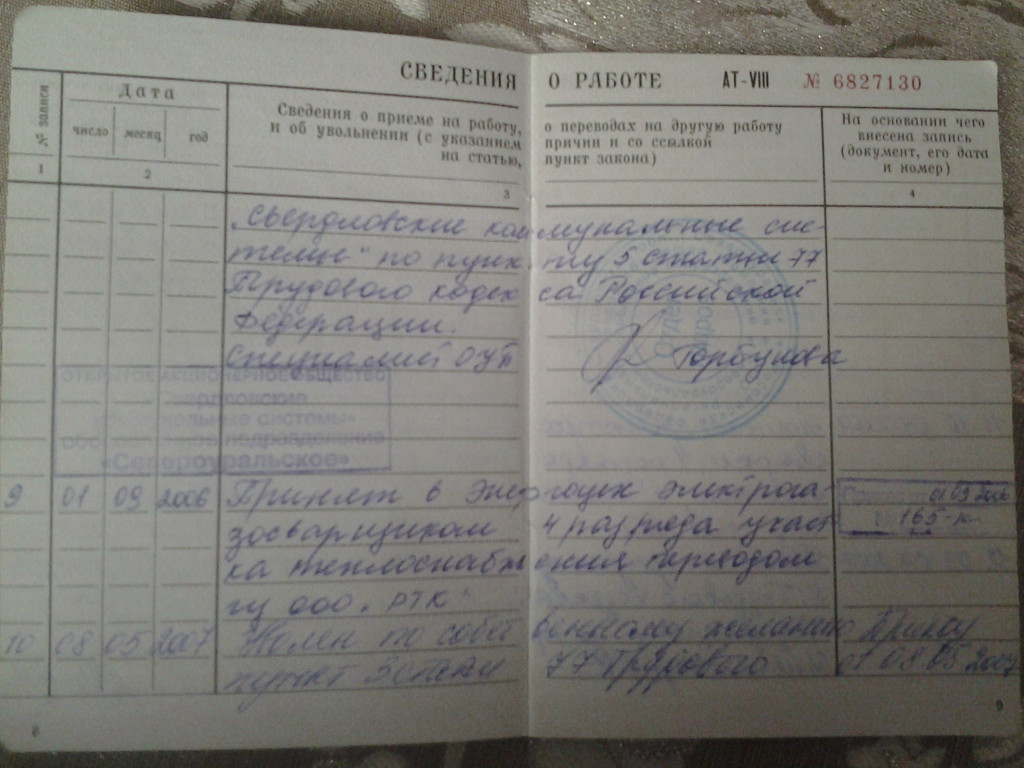 СВЕДЕНИЯ О РАБОТЕ АТ-VIII № 6827130
№ записи
Дата
число месяц год
Сведения о приеме на работу, о переводах на другую работу
и об увольнении (с указанием причин и со ссылкой
на статью, пункт закона)
На основании чего
внесена запись
(документ, его дата
и номер)
1 2 3 4
„Свердловские коммунальные сис-
темы" по пункту 5 статьи 77
Трудового кодекса Российской
Федерации.
Специалист ОУП Горбунова
ОТКРЫТОЕ АКЦИОНЕРНОЕ ОБЩЕСТВО
«Свердловские
коммунальные системы»
обособленное подразделение
«Североуральское»
9 01 09 2006 Принят в энергоцех электрога- 01.09.2006
зосварщиком 4 разряда участ- 165-к
ка теплоснабжения переводом
ООО „РТК"
10 08 05 2007 по собственному желанию
пункт 3 статьи 77 Трудового от 08.05.2007
8 9